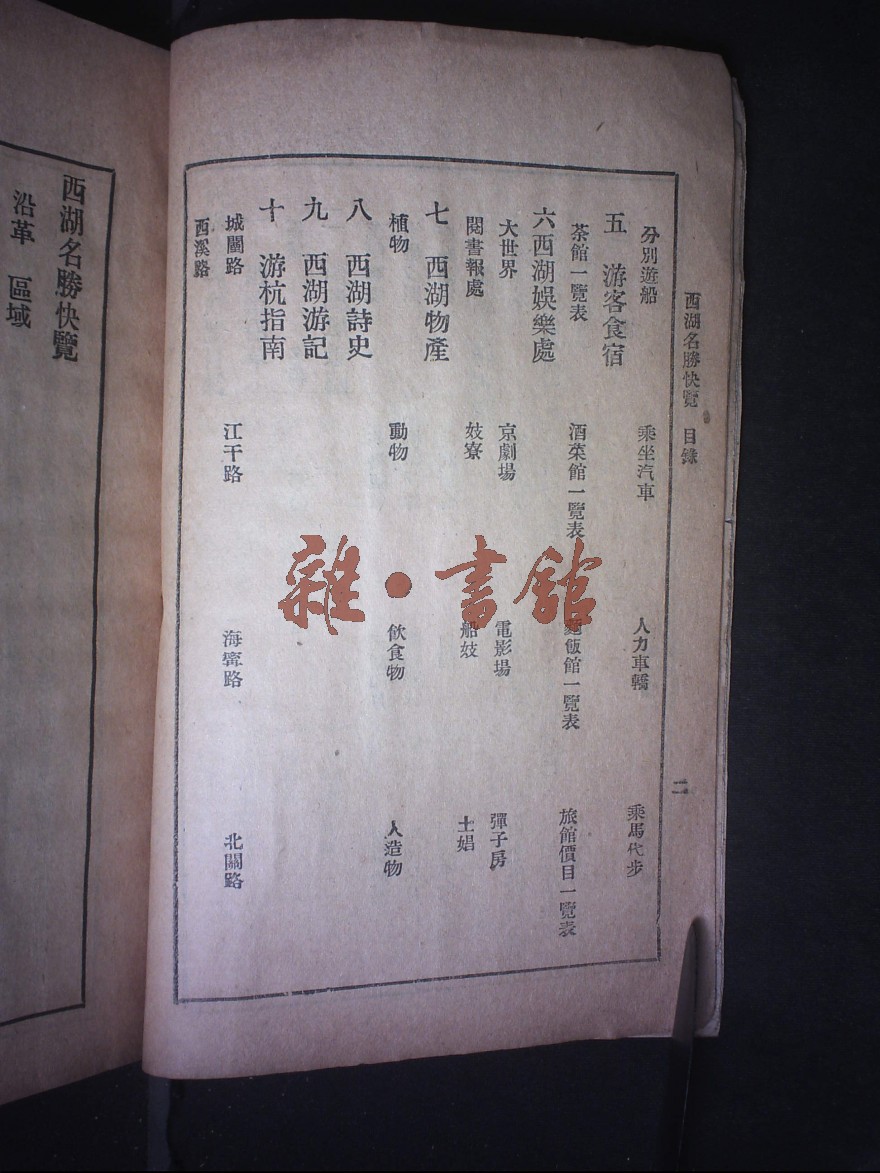 西湖名勝快覽　目錄
二
分別遊船　乘坐汽車　人力車轎　乘馬代步
五　游客食宿
茶館一覽表　酒菜館一覽表　麵飯館一覽表　旅館價目一覽表
六　西湖娛樂處
大世界　京劇場　電影場　彈子房
閱書報處　妓寮　船妓　土娼
七　西湖物產
植物　動物　飲食物　人造物
八　西湖詩史
九　西湖游記
十　游杭指南
城闉路　江干路　海寗路　北關路
西溪路
西湖名勝快覽
沿革　區域
雜·書館